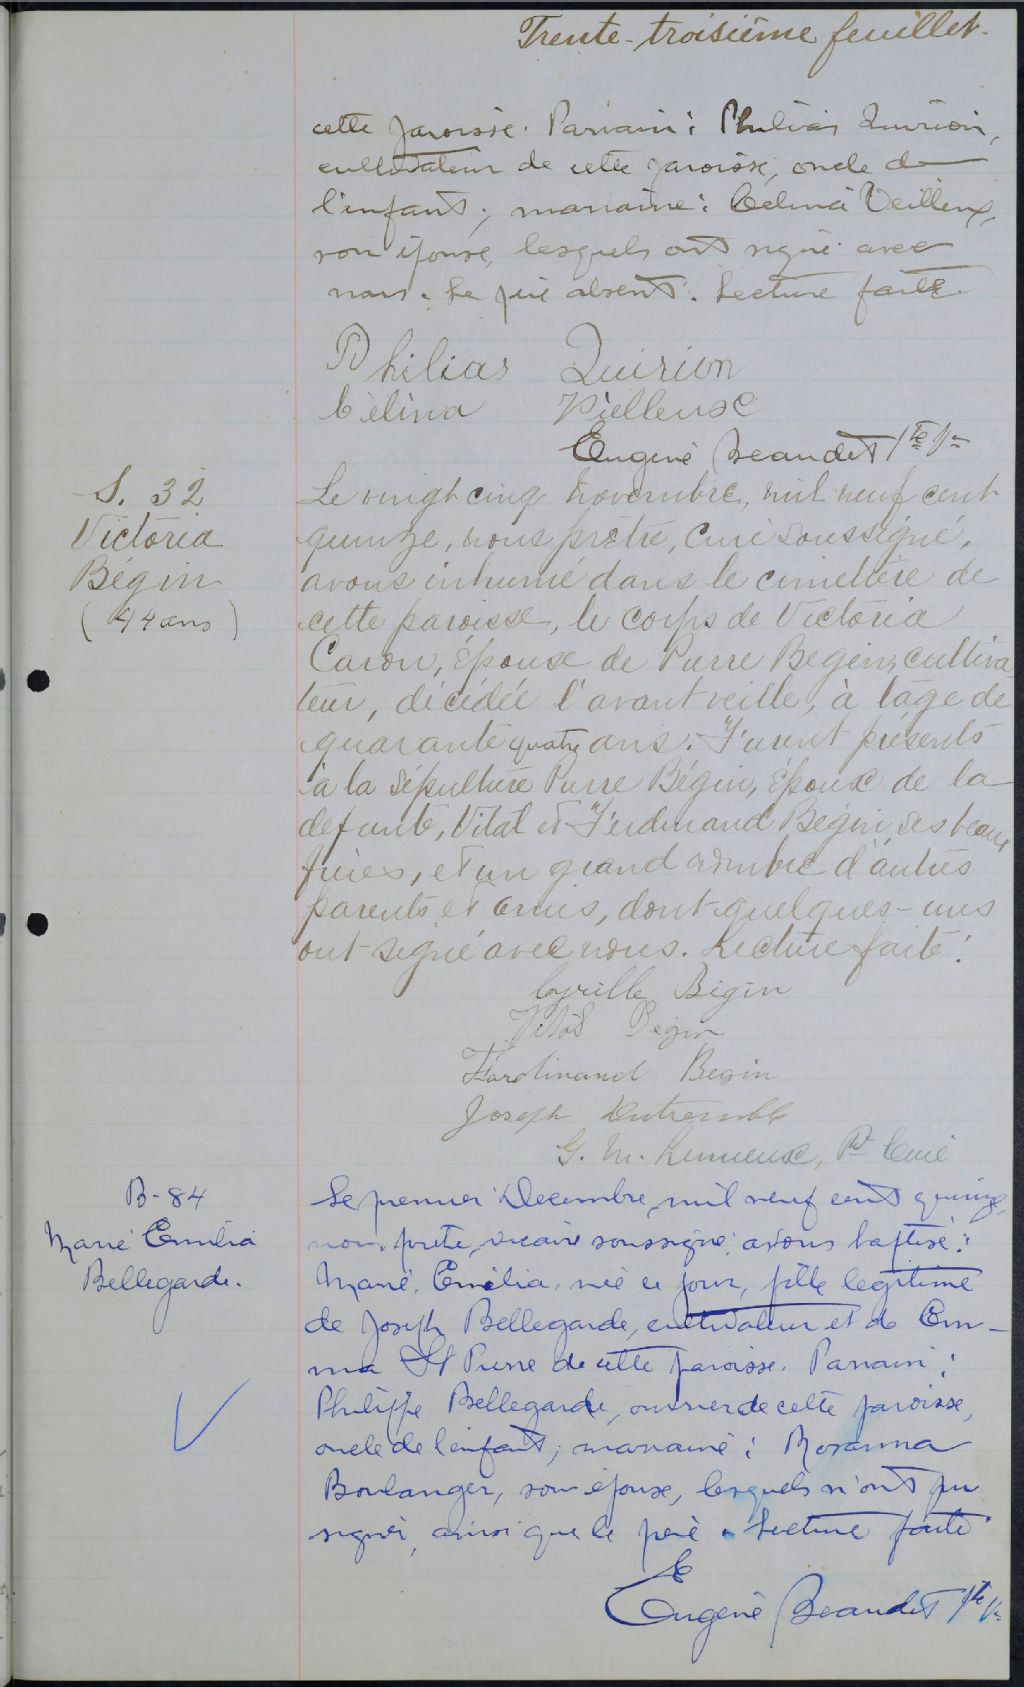 Trente-troisième feuillet.
cette paroisse. Parrain: Philias Quirion,
cultivateur de cette paroisse, oncle de
l'enfant; marraine: Celina Veilleux,
son épouse, lesquels ont signé avec
nous. Le père absent. Lecture faite.
Philias Quirion
Célina Vielleuse
Eugène Beaudet Ptre Vre
S. 32
Victoria
Bégin
(44 ans)
Le vingt cinq Novembre, mil neuf cent
quinze, nous prêtre, Curé soussigné,
avons inhumé dans le cimetière de
cette paroisse, le corps de Victoria
Caron, Épouse de Pierre Bégin, cultiva
teur, décédée l'avant veille, à l'âge de
quarante quatre ans. Furent présents
à la sépulture Pierre Bégin, époux de la
defunte, Vital et Ferdinand Bégin, ses beaux
frères, et un grand nombre d'autres
parents et amis, dont quelques-uns
ont signé avec nous. Lecture faite!
Cyrille Bégin
Vital Bégin
Ferdinand Begin
Joseph Dutremble
G. M. Lemieux, Pt Curé
B-84
Marie Emilia
Bellegarde.
Le premier Decembre, mil neuf cent quinze,
nous, prêtre, vicaire soussigné, avons baptisé:
Marie, Emilia, née ce jour, fille légitime
de Joseph Bellegarde, cultivateur et de Em-
ma St Pierre de cette paroisse. Parrain:
Philippe Bellegarde, ouvrier de cette paroisse,
oncle de l'enfant; marraine: Rosanna
Boulanger, son épouse, lesquels n'ont pu
signer, ainsi que le père. Lecture faite.
Eugène Beaudet Ptre Vre